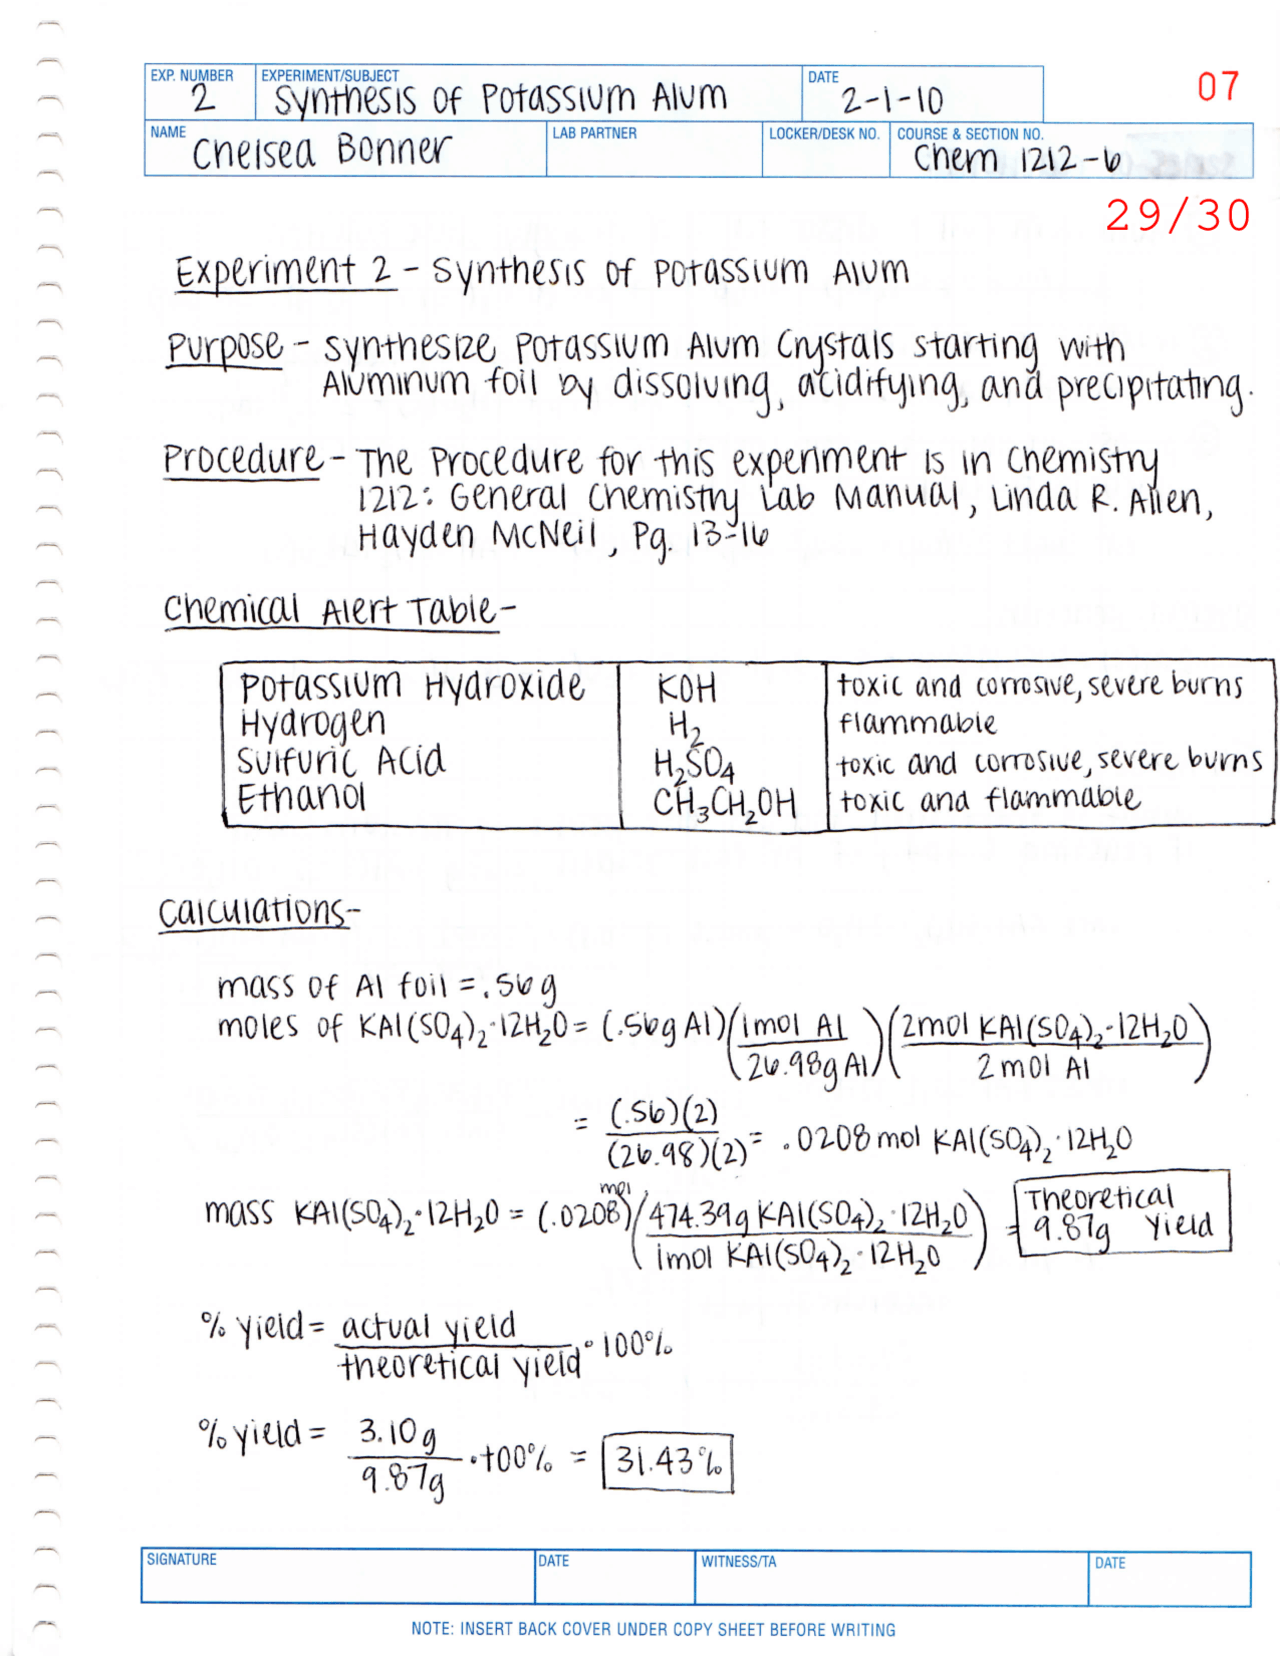 EXP. NUMBER EXPERIMENT/SUBJECT DATE
2 Synthesis of Potassium Alum 2-1-10 07
NAME LAB PARTNER LOCKER/DESK NO. COURSE & SECTION NO.
Chelsea Bonner Chem 1212-6
29/30
Experiment 2 - Synthesis of Potassium Alum
Purpose - Synthesize Potassium Alum Crystals starting with
Aluminum foil by dissolving, acidifying, and precipitating.
Procedure - The Procedure for this experiment is in Chemistry
1212: General Chemistry Lab Manual, Linda R. Allen,
Hayden McNeil, Pg. 13-16
Chemical Alert Table-
Potassium Hydroxide KOH toxic and corrosive, severe burns
Hydrogen H₂ flammable
Sulfuric Acid H₂SO₄ toxic and corrosive, severe burns
Ethanol CH₃CH₂OH toxic and flammable
Calculations-
mass of Al foil = .56g
moles of KAl(SO₄)₂·12H₂O = (.56g Al)(1mol Al / 26.98g Al)(2mol KAl(SO₄)₂·12H₂O / 2mol Al)
= (.56)(2) / (26.98)(2) = .0208 mol KAl(SO₄)₂·12H₂O
mass KAl(SO₄)₂·12H₂O = (.0208 mol)(474.39g KAl(SO₄)₂·12H₂O / 1mol KAl(SO₄)₂·12H₂O) = Theoretical
9.87g Yield
% yield = actual yield / theoretical yield · 100%
% yield = 3.10g / 9.87g · 100% = 31.43%
SIGNATURE DATE WITNESS/TA DATE
NOTE: INSERT BACK COVER UNDER COPY SHEET BEFORE WRITING